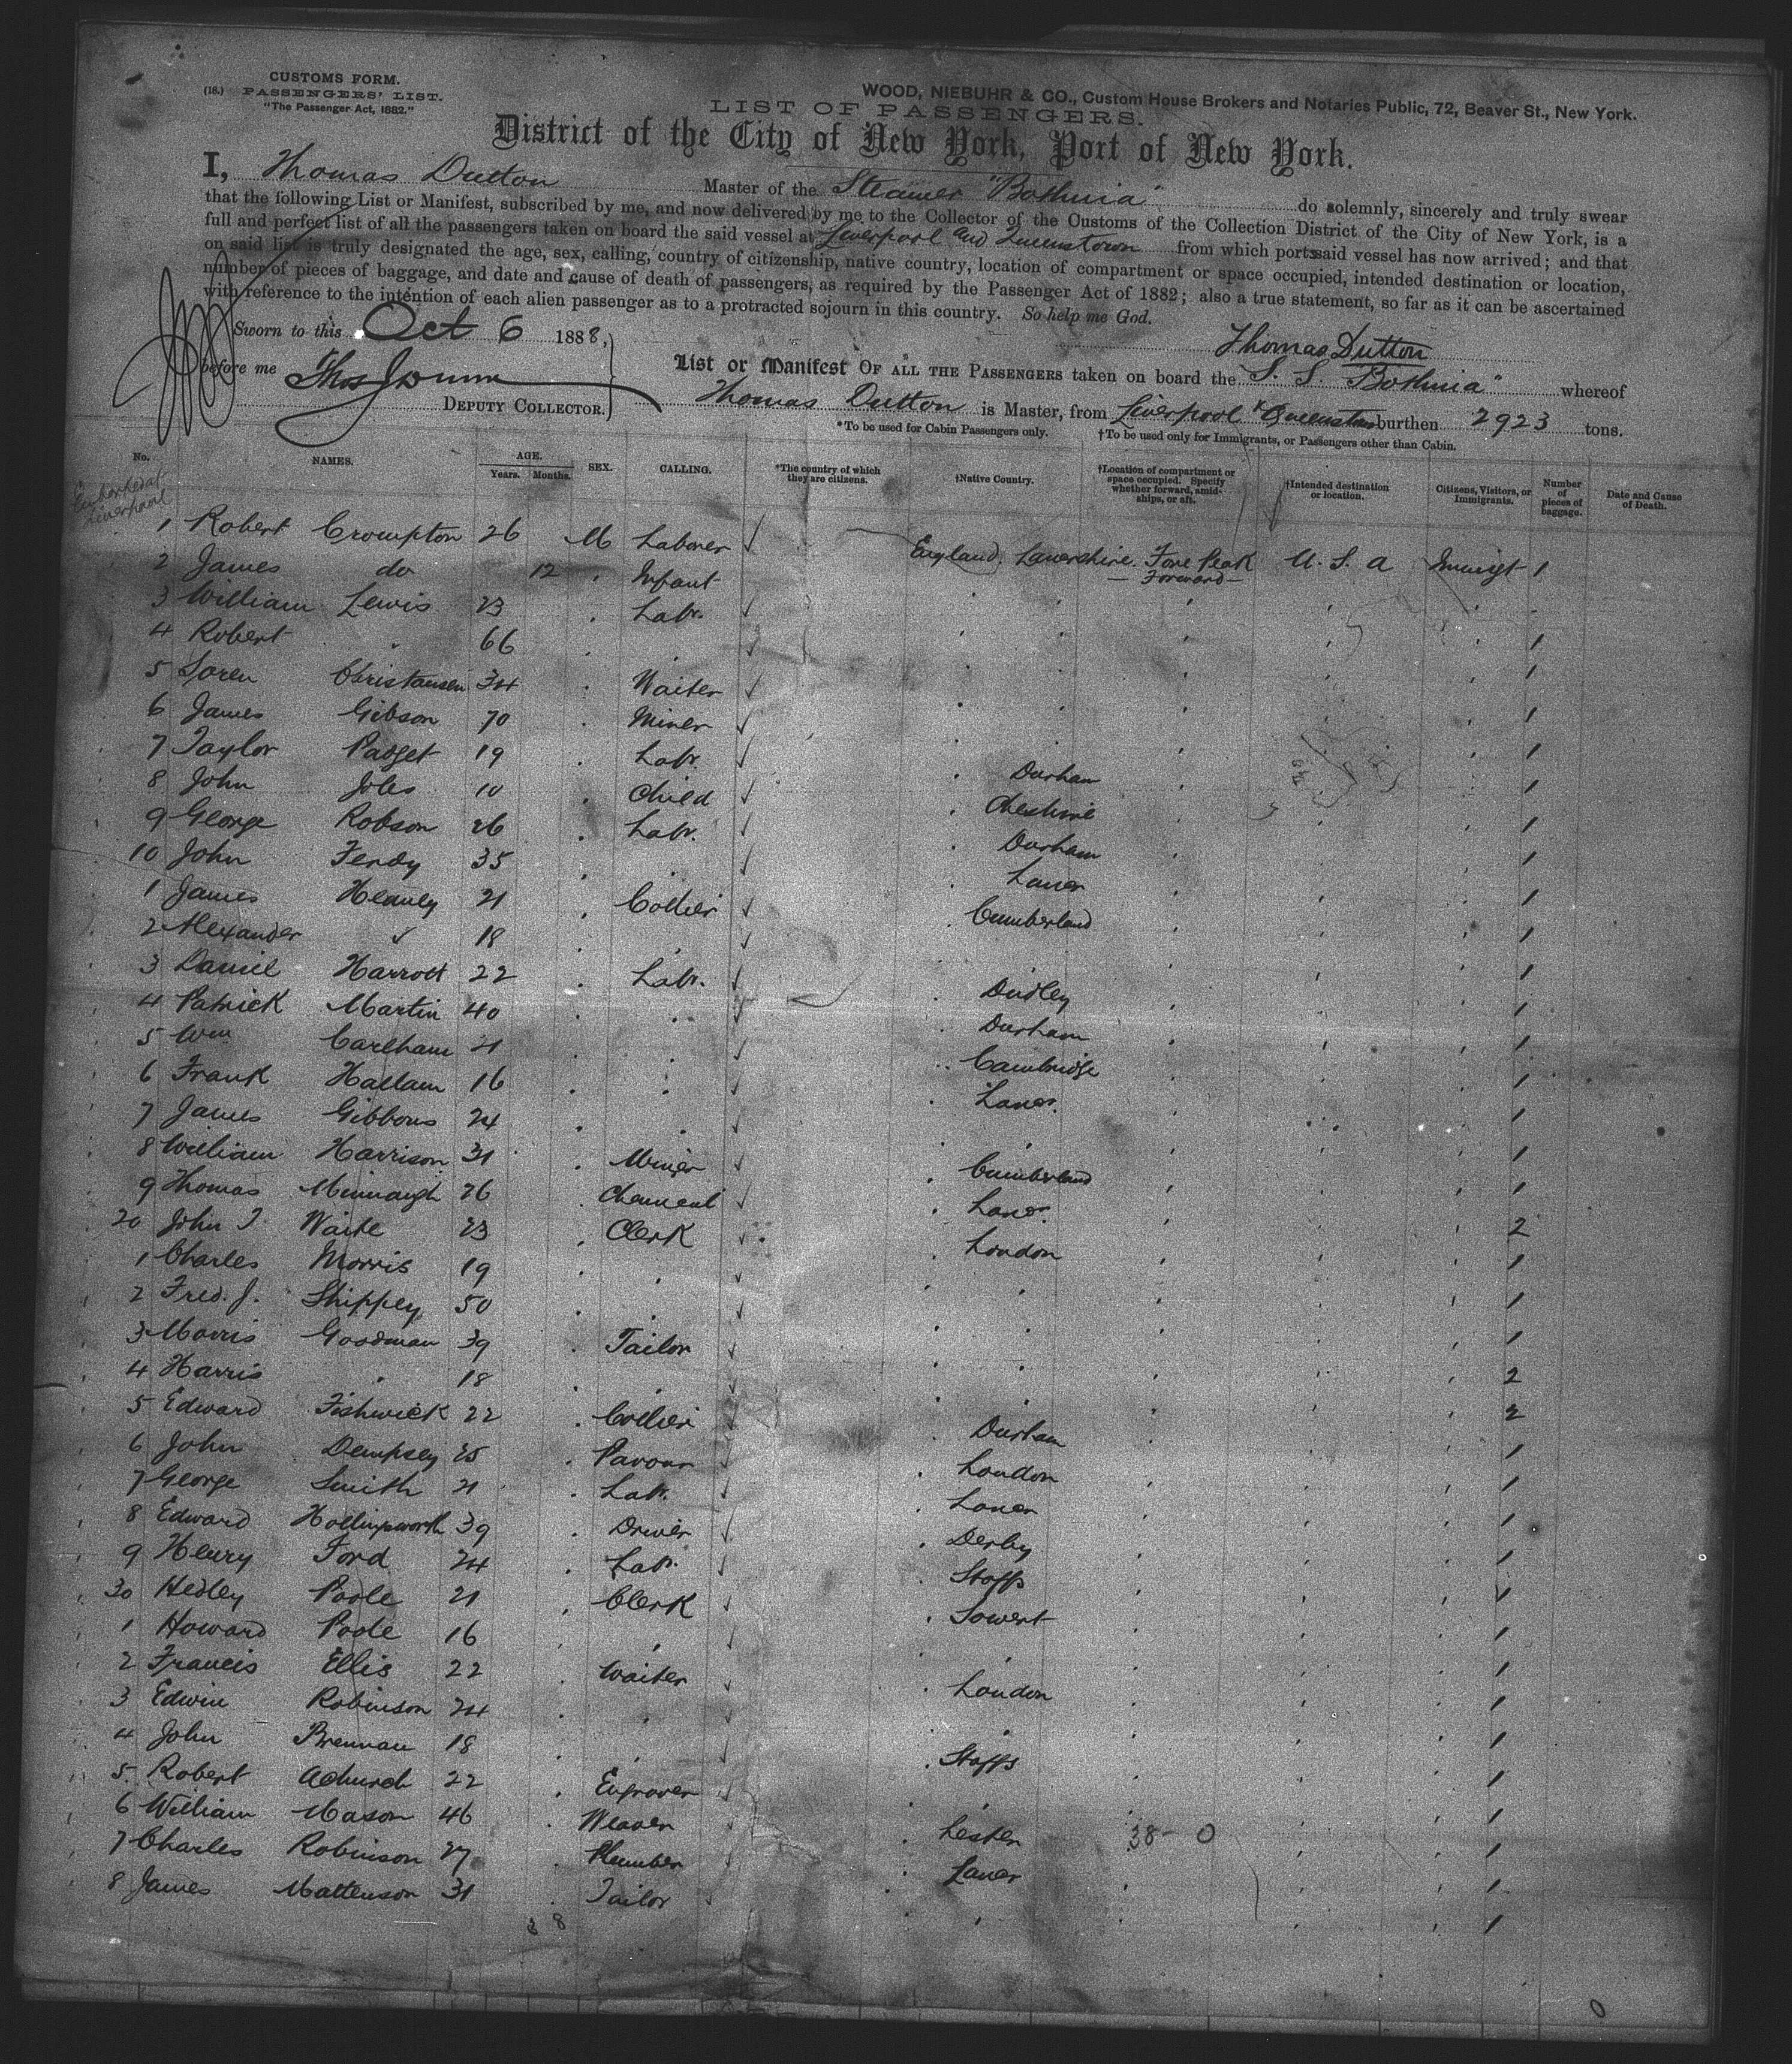 CUSTOMS FORM.
(18.) PASSENGERS' LIST.
"The Passenger Act, 1882."
WOOD, NIEBUHR & CO., Custom House Brokers and Notaries Public, 72, Beaver St., New York.
LIST OF PASSENGERS.
District of the City of New York, Port of New York.
I, Thomas Dutton Master of the Steamer "Bothnia" do solemnly, sincerely and truly swear
that the following List or Manifest, subscribed by me, and now delivered by me to the Collector of the Customs of the Collection District of the City of New York, is a
full and perfect list of all the passengers taken on board the said vessel at Liverpool and Queenstown from which port said vessel has now arrived; and that
on said list is truly designated the age, sex, calling, country of citizenship, native country, location of compartment or space occupied, intended destination or location,
number of pieces of baggage, and date and cause of death of passengers, as required by the Passenger Act of 1882; also a true statement, so far as it can be ascertained
with reference to the intention of each alien passenger as to a protracted sojourn in this country. So help me God.
Sworn to this Oct 6 1888,
Thomas Dutton
before me
DEPUTY COLLECTOR.
List or Manifest OF ALL THE PASSENGERS taken on board the S. S. "Bothnia" whereof
Thomas Dutton is Master, from Liverpool & Queenstown burthen 2923 tons.
*To be used for Cabin Passengers only. †To be used only for Immigrants, or Passengers other than Cabin.
No. NAMES. AGE. Years. Months. SEX. CALLING. *The country of which they are citizens. †Native Country. †Location of compartment or space occupied. Specify whether forward, amidships, or aft. †Intended destination or location. Citizens, Visitors, or Immigrants. Number of pieces of baggage. Date and Cause of Death.
Embarked at
Liverpool
1 Robert Crompton 26 M Laborer England Fore Peak Forward U. S. A 1
2 James do 12 Infant
3 William Lewis 23 Labr. 1
4 Robert " 66 1
5 Soren Christansen 34 Waiter 1
6 James Gibson 70 Miner 1
7 Taylor Padget 19 Labr. Durham 1
8 John Joles 10 Child Cheshire 1
9 George Robson 26 Labr. Durham 1
10 John Fendy 35 Lancr 1
1 James Heanley 21 Collier Cumberland 1
2 Alexander 18 1
3 Daniel Harrott 22 Labr. Dudley 1
4 Patrick Martin 40 Durham 1
5 Wm Carlham 21 Cambridge 1
6 Frank Hallam 16 Lancr. 1
7 James Gibbons 24 1
8 William Harrison 31 Miner Cumberland 1
9 Thomas Minnaugh 26 Lancr. 2
20 John T. Waite 23 Clerk London 1
1 Charles Morris 19 1
2 Fred. J. Shippey 50 1
3 Morris Goodman 39 Tailor 2
4 Harris " 18 2
5 Edward Fishwick 22 Collier Durham 1
6 John Dempsey 25 Pavour London 1
7 George Smith 21 Labr. Lancr 1
8 Edward Hollingsworth 39 Driver Derby 1
9 Henry Ford 24 Labr. Staffs 1
30 Hedley Poole 21 Clerk 1
1 Howard Poole 16 1
2 Francis Ellis 22 Waiter London 1
3 Edwin Robinson 24 1
4 John Brennan 18 Staffs 1
5 Robert Achurch 22 Engraver 1
6 William Mason 46 Weaver Lester 38 - 0 1
7 Charles Robinson 27 Plumber Lancr 1
8 James Mattenson 31 Tailor 1
38
0